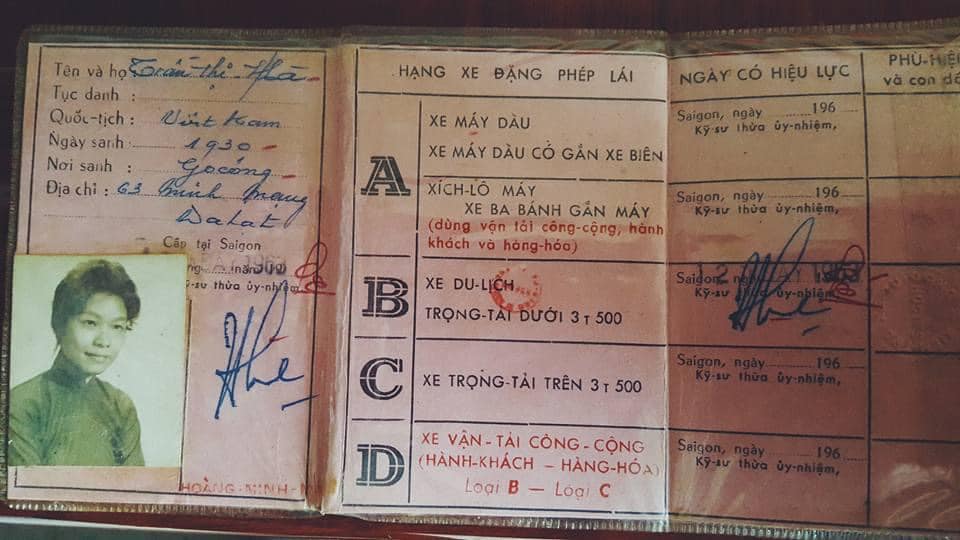 Tên và họ Trần thị Hà
Tục danh :
Quốc-tịch : Việt Nam
Ngày sanh : 1930
Nơi sanh : Gòcông
Địa chỉ : 63 Minh Mạng
Dalat
Cấp tại Saigon
Kỹ-sư thừa ủy-nhiệm,
HOÀNG-NINH
HẠNG XE ĐẶNG PHÉP LÁI
A
XE MÁY DẦU
XE MÁY DẦU CÓ GẮN XE BIÊN
XÍCH-LÔ MÁY
XE BA BÁNH GẮN MÁY
(dùng vận tải công-cộng, hành
khách và hàng-hóa)
B
XE DU-LỊCH
TRỌNG-TẢI DƯỚI 3 T 500
C
XE TRỌNG-TẢI TRÊN 3 T 500
D
XE VẬN-TẢI CÔNG-CỘNG
(HÀNH-KHÁCH – HÀNG-HÓA)
Loại B — Loại C
NGÀY CÓ HIỆU LỰC
Saigon, ngày 196
Kỹ-sư thừa ủy-nhiệm,
Saigon, ngày 196
Kỹ-sư thừa ủy-nhiệm,
Saigon, 12
Kỹ-sư thừa ủy-nhiệm
Saigon, ngày 196
Kỹ-sư thừa ủy-nhiệm,
Saigon, ngày 196
Kỹ-sư thừa ủy-nhiệm,
PHÙ-HIỆU
và con dấ